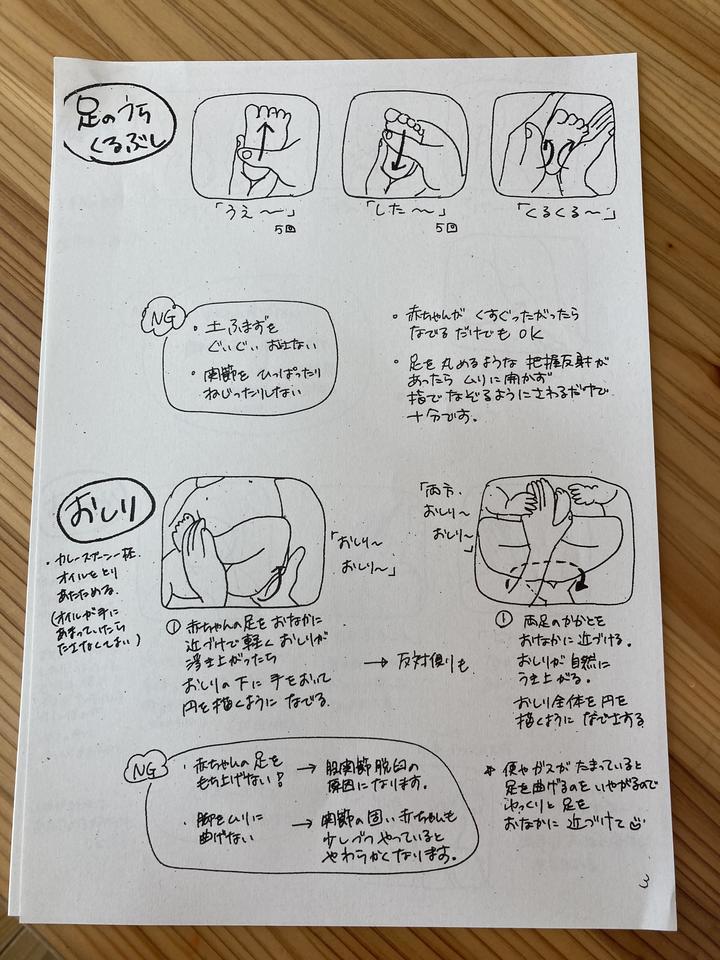 足のうら
くるぶし
「うえ〜」
5回
「した〜〜」
5回
「くるくる〜」
NG
・土ふまずを
ぐいぐい お辻ない
・関節を ひっぱったり
ねじったりしない
・赤ちゃんが くすぐったがったら
なでる だけでも OK
・足を丸めるような 把握反射が
あったら ムリに開かず
指で なぞるように さわるだけで
十分です。
おしり
・カレースプーン一杯
オイルをとり
あたためる。
(オイルが手に
あまっていたら
たさなくてよい)
「おしり〜
おしり〜」
① 赤ちゃんの足を おなかに
近づけて軽く おしりが
浮き上がったら
おしりの下に 手をおいて
円を描くように なでる。
→ 反対側も
「両方、
おしり〜
おしり〜」
① 両足のかかとを
おなかに近づける。
おしりが自然に
うき上がる。
おしり全体を円を
描くように なでさする
NG
・赤ちゃんの足を
もち上げない!
→ 股関節脱臼の
原因になります。
・脚をムリに
曲げない
→ 関節の固い赤ちゃんも
少しづつ やっていると
やわらかくなります。
* 便やガスが たまっていると
足を曲げるのを いやがるので
ゆっくりと 足を
おなかに 近づけて
3